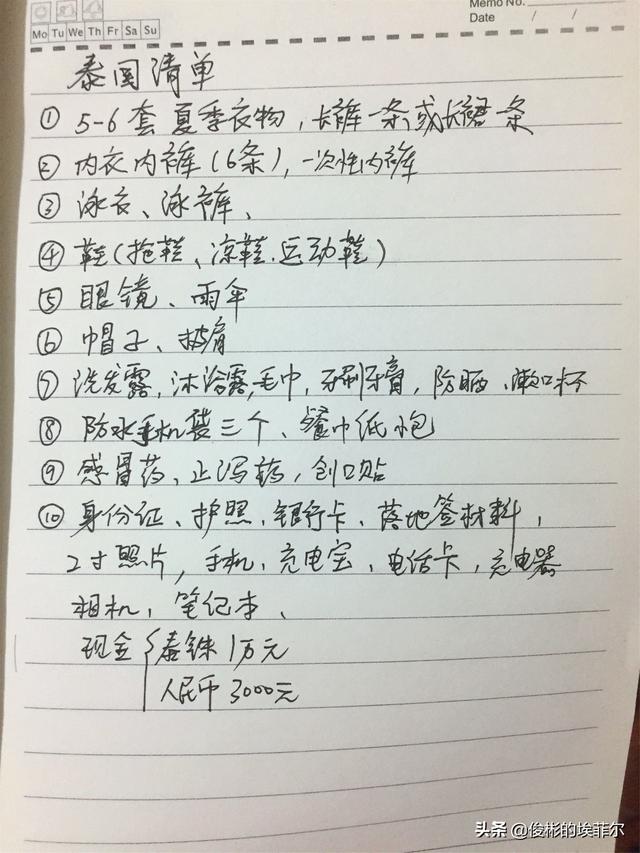 Memo No.
Mo Tu We Th Fr Sa Su
Date / /
泰国清单
① 5-6套夏季衣物，长裤一条或长裙一条
② 内衣内裤（6条），一次性内裤
③ 泳衣、泳裤、
④ 鞋（拖鞋、凉鞋、运动鞋）
⑤ 眼镜、雨伞
⑥ 帽子、披肩
⑦ 洗发露，沐浴露，毛巾，牙刷牙膏，防晒、漱口杯
⑧ 防水手机袋三个、餐巾纸小包
⑨ 感冒药、止泻药，创口贴
⑩ 身份证、护照、银行卡、落地签材料，
2寸照片，手机，充电宝、电话卡，充电器
相机，笔记本、
现金 { 泰铢1万元
人民币3000元
头条 @俊彬的埃菲尔